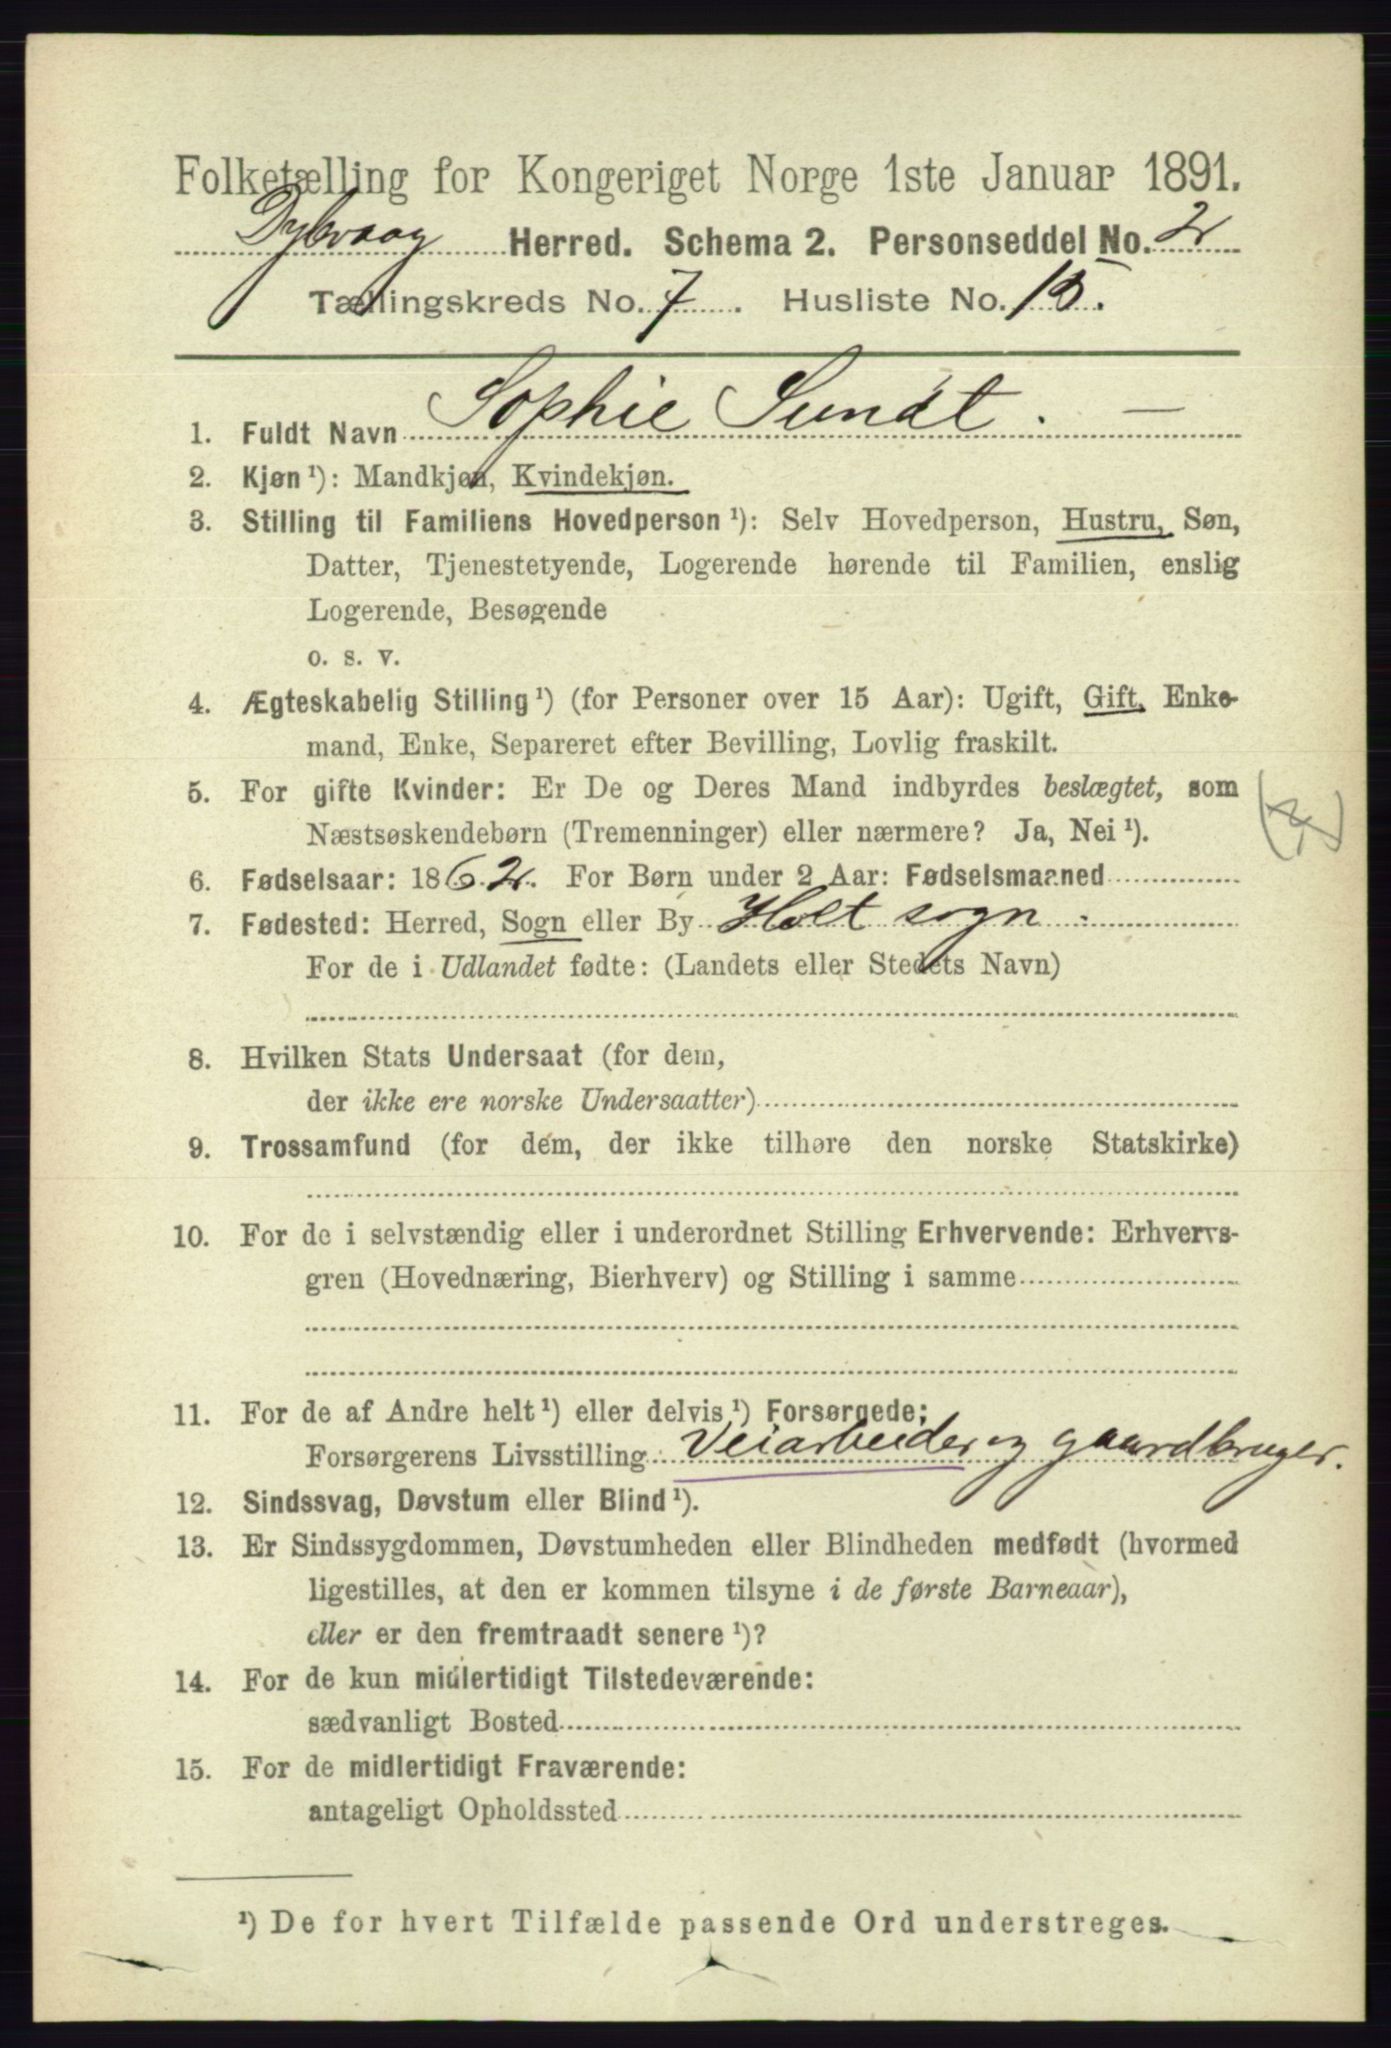 Folketælling for Kongeriget Norge 1ste Januar 1891.
Dybvaag Herred. Schema 2. Personseddel No. 2
Tællingskreds No. 7. Husliste No. 15.
1. Fuldt Navn Sophie Sundt. —
2. Kjøn ¹): Mandkjøn, Kvindekjøn.
3. Stilling til Familiens Hovedperson ¹): Selv Hovedperson, Hustru, Søn,
Datter, Tjenestetyende, Logerende hørende til Familien, enslig
Logerende, Besøgende
o. s. v.
4. Ægteskabelig Stilling ¹) (for Personer over 15 Aar): Ugift, Gift, Enke-
mand, Enke, Separeret efter Bevilling, Lovlig fraskilt.
5. For gifte Kvinder: Er De og Deres Mand indbyrdes beslægtet, som
Næstsøskendebørn (Tremenninger) eller nærmere? Ja, Nei ¹).
6. Fødselsaar: 1862. For Børn under 2 Aar: Fødselsmaaned
7. Fødested: Herred, Sogn eller By Holt sogn.
For de i Udlandet fødte: (Landets eller Stedets Navn)
8. Hvilken Stats Undersaat (for dem,
der ikke ere norske Undersaatter)
9. Trossamfund (for dem, der ikke tilhøre den norske Statskirke)
10. For de i selvstændig eller i underordnet Stilling Erhvervende: Erhvervs-
gren (Hovednæring, Bierhverv) og Stilling i samme
11. For de af Andre helt ¹) eller delvis ¹) Forsørgede:
Forsørgerens Livsstilling Veiarbeider og gaardbruger.
12. Sindssvag, Døvstum eller Blind ¹).
13. Er Sindssygdommen, Døvstumheden eller Blindheden medfødt (hvormed
ligestilles, at den er kommen tilsyne i de første Barneaar),
eller er den fremtraadt senere ¹)?
14. For de kun midlertidigt Tilstedeværende:
sædvanligt Bosted
15. For de midlertidigt Fraværende:
antageligt Opholdssted
¹) De for hvert Tilfælde passende Ord understreges.